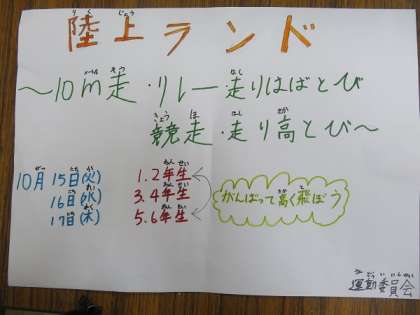 陸上ランド
～10m走・リレー走りはばとび
競走・走り高とび～
10月 15日(火) 1.2年生
16日(水) 3.4年生
17日(木) 5.6年生
がんばって高く飛ぼう
運動委員会